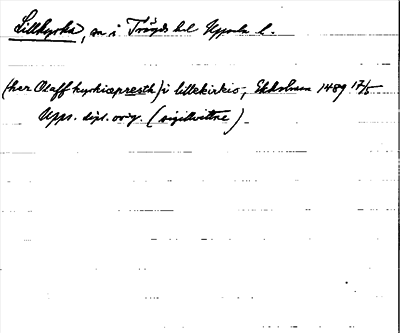 Lillkyrka, sn i Trögds hd Uppsala l.
(her Olaff kyrkiopresth) i littekirkio, Ekholmen 1489 17/5
Upps. dipl. orig. (sigillvittne)